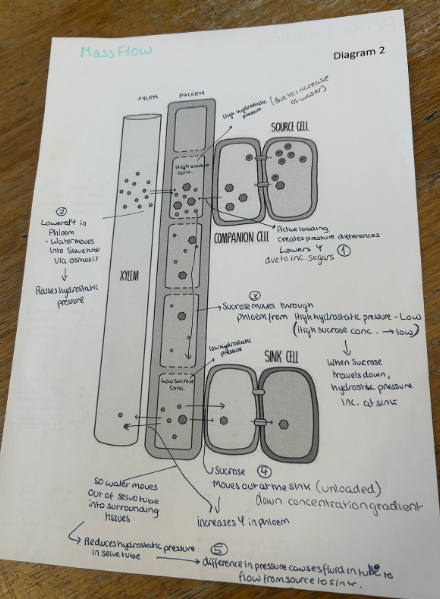 Mass Flow
Diagram 2
XYLEM
PHLOEM
High hydrostatic
pressure
(due to increase
of water)
SOURCE CELL
High sucrose
conc.
②
Lower Ψ in
Phloem
- Water moves
into Sieve tube
via osmosis
Raises hydrostatic
pressure
COMPANION CELL
Active loading
creates pressure differences
Lowers Ψ
due to inc. sugars ①
XYLEM
③
Sucrose moves through
phloem from High hydrostatic pressure - Low
(High sucrose conc. → low)
When Sucrose
travels down,
hydrostatic pressure
inc. at sink
low hydrostatic
pressure
SINK CELL
Low sucrose
conc.
Sucrose ④
Moves out at the sink (unloaded)
down concentration gradient
so water moves
out of seive tube
into surrounding
tissues
increases Ψ in phloem
Reduces hydrostatic pressure
in seive tube
⑤
→ difference in pressure causes fluid in tube to
flow from source to sink.